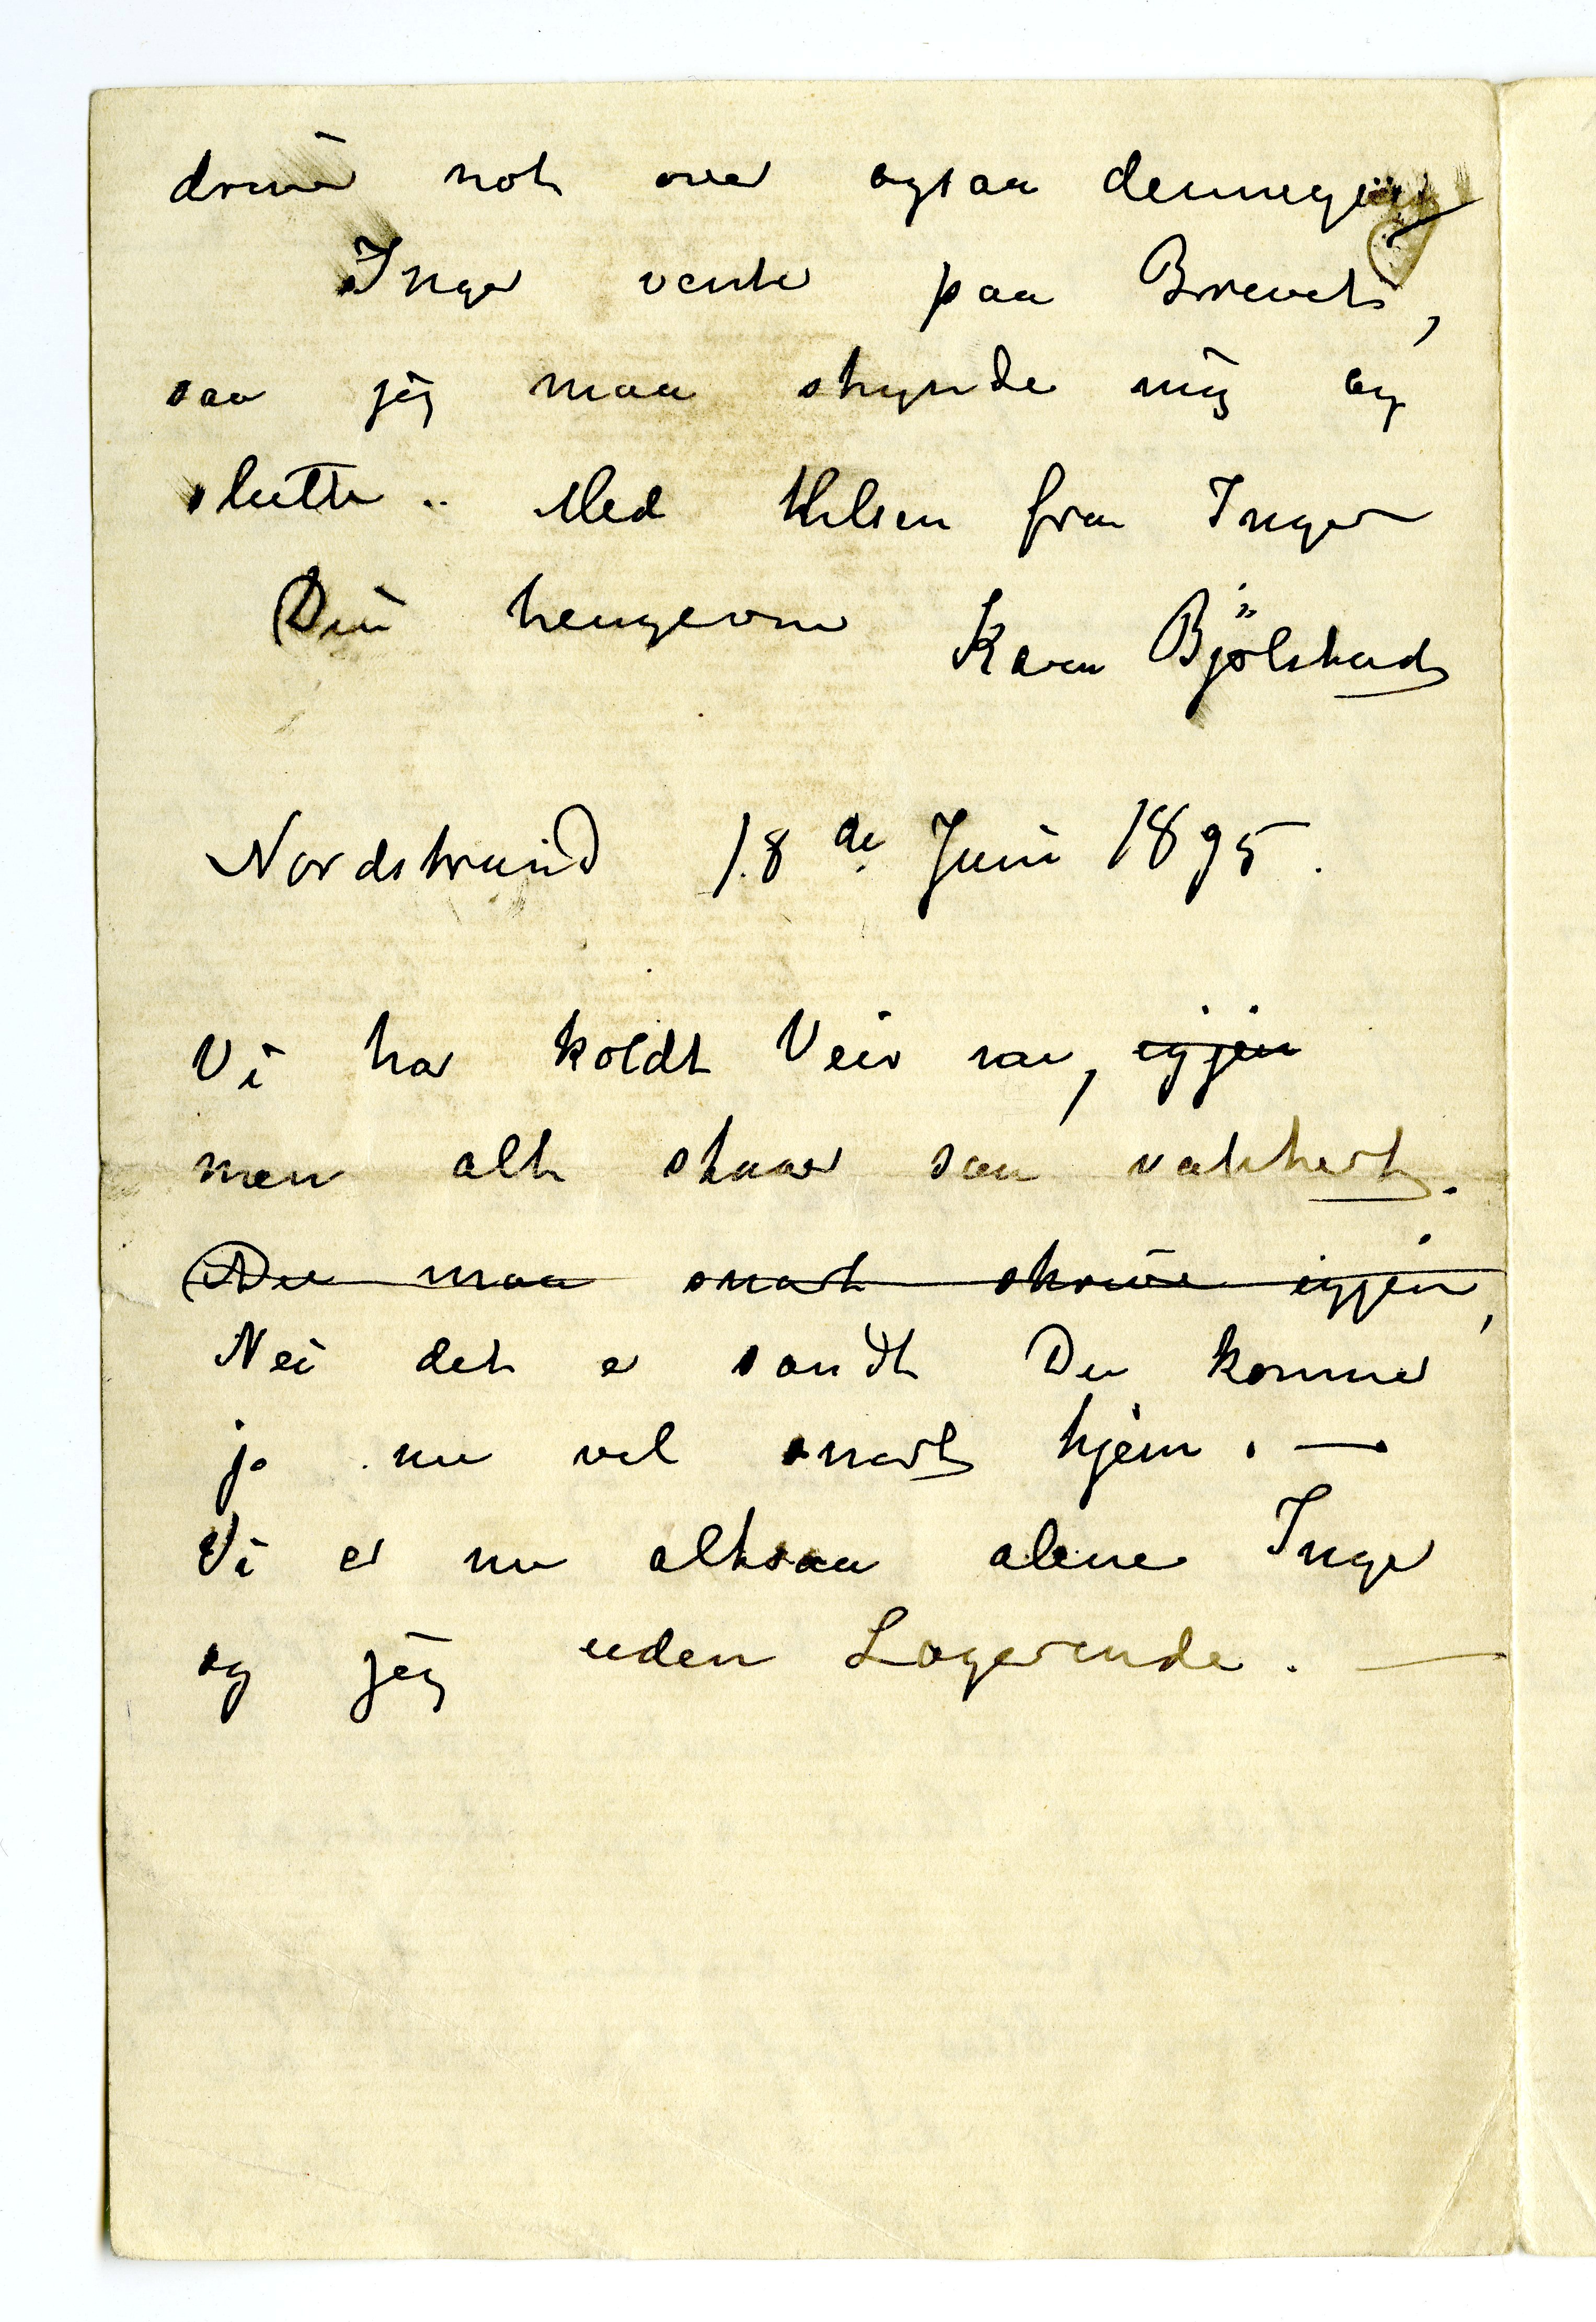 driver not over ogsaa dennegang
Inger venter paa Brevet,
saa jeg maa skynde mig og
slutte.. Med Hilsen fra Inger
Din hengevne Karen Bjölstad
Nordstrand 18de Juni 1895.
Vi har koldt Veir nu, igjen
men alt staar saa vakkert.
Du maa snart skrive igjen,
Nei det er sandt Du kommer
jo nu vel snart hjem. —
Vi er nu altsaa alene Inger
og jeg uden Logerende. —